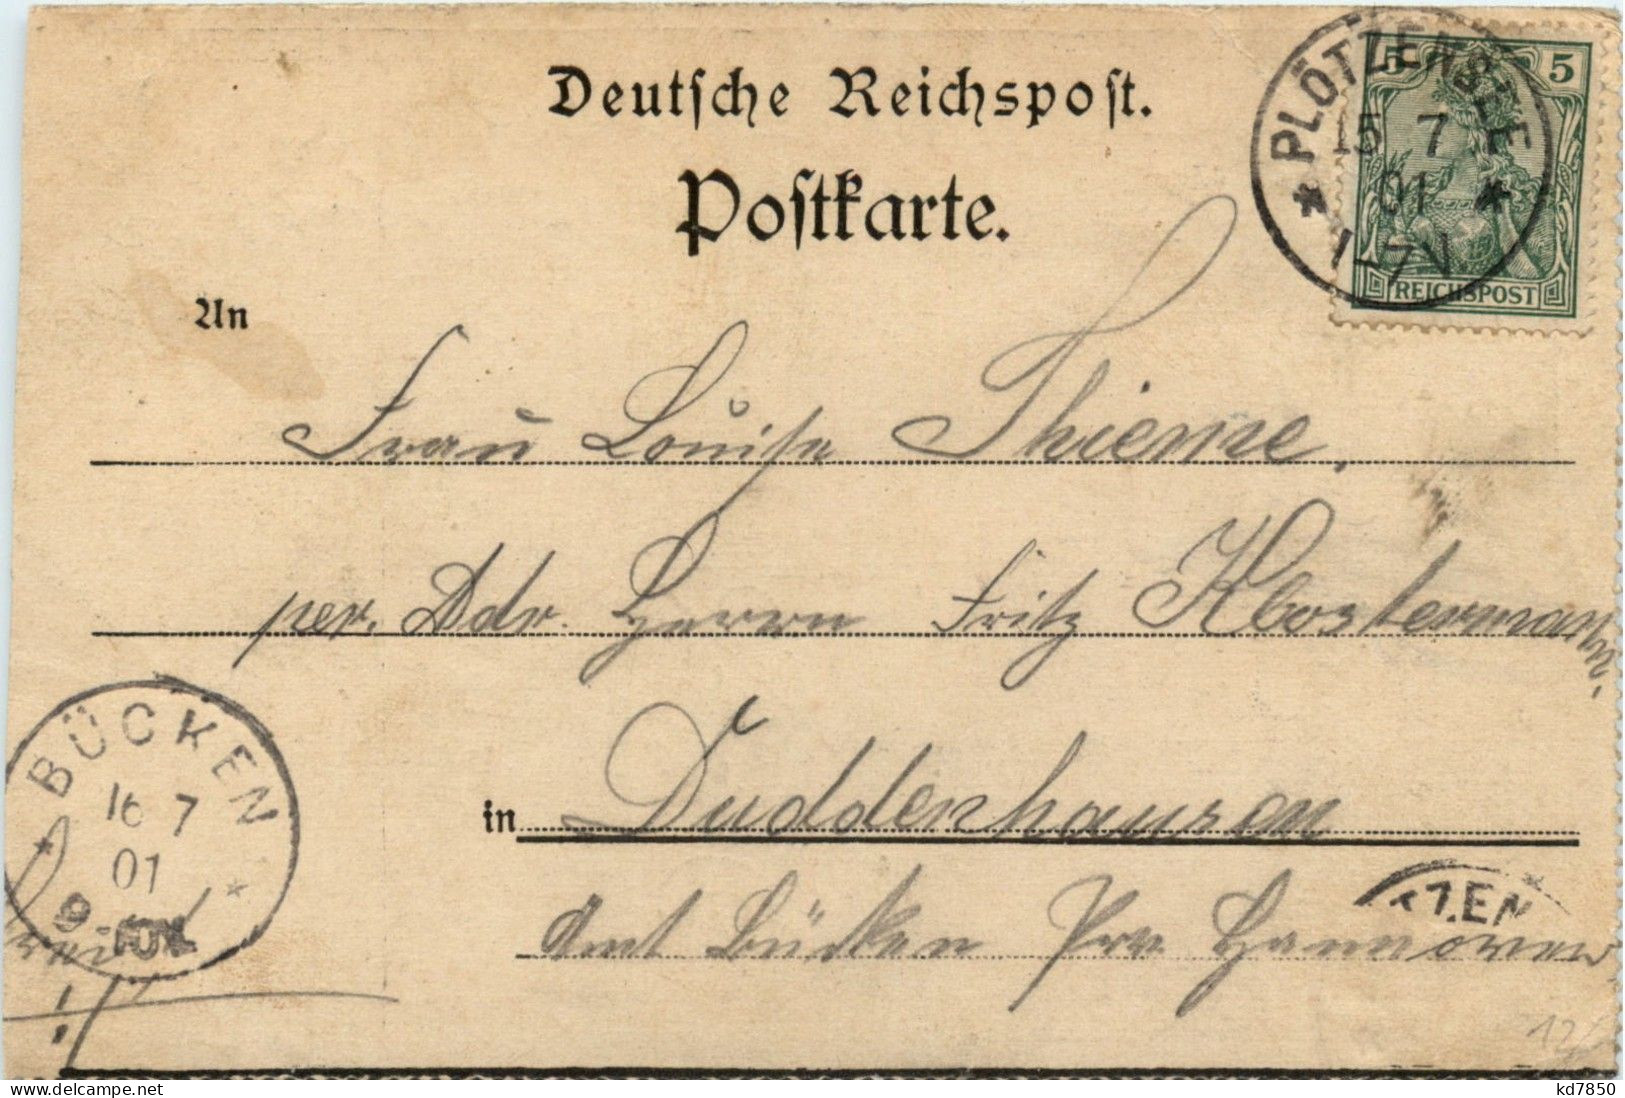 Deutsche Reichspost.
Postkarte.
5 5
REICHSPOST
* PLÖTZENSEE *
15 7
01
1-7V
An
Frau Louise Thieme,
per. Adr. Herrn Fritz Klostermann.
in Duddenhausen
Amt Bücken Prv. Hannover
BÜCKEN
16 7
01
*
TZEN
12
www.delcampe.net
kd7850